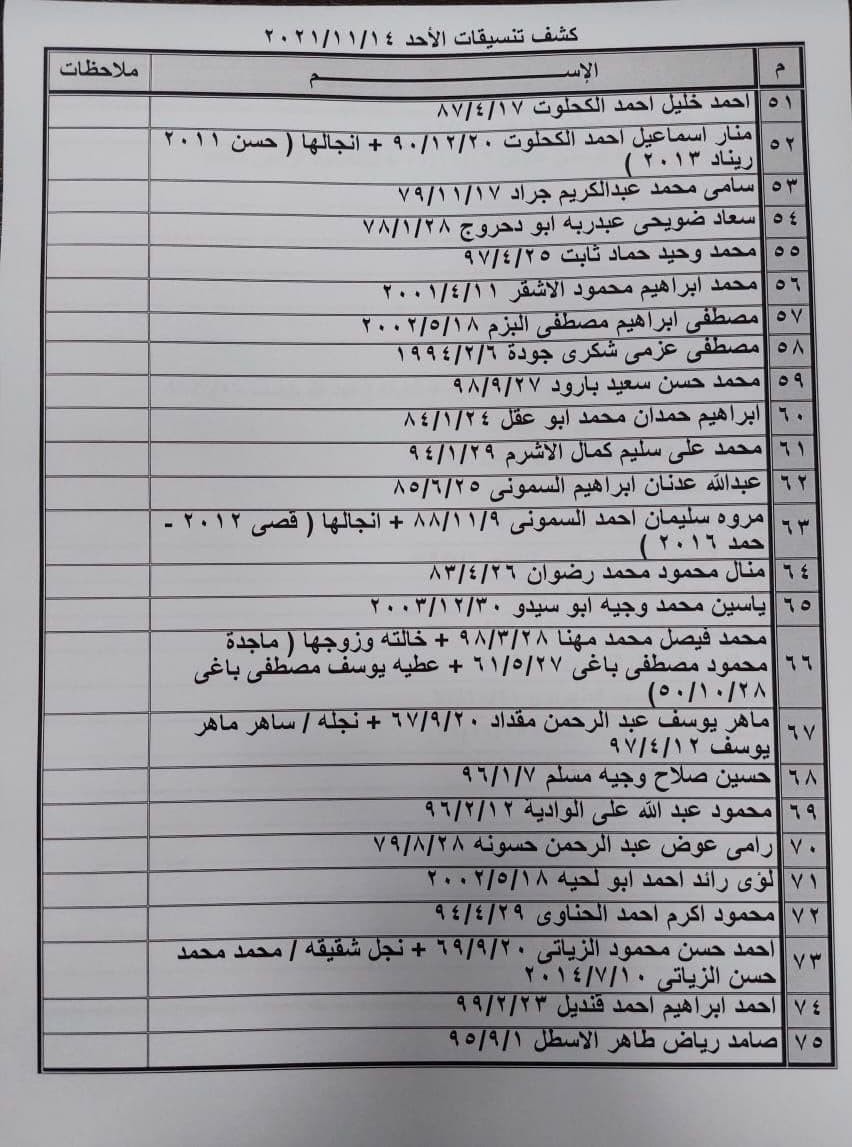 كشف تنسيقات الأحد ٢٠٢١/١١/١٤
م الإســـــــــــــم ملاحظات
٥١ احمد خليل احمد الكحلوت ٨٧/٤/١٧
٥٢ منار اسماعيل احمد الكحلوت ٩٠/١٢/٢٠ + انجالها ( حسن ٢٠١١
ريناد ٢٠١٣ )
٥٣ سامى محمد عبدالكريم جراد ٧٩/١١/١٧
٥٤ سعاد ضويحى عبدربه ابو دحروج ٧٨/١/٢٨
٥٥ محمد وحيد حماد ثابت ٩٧/٤/٢٥
٥٦ محمد ابراهيم محمود الاشقر ٢٠٠١/٤/١١
٥٧ مصطفى ابراهيم مصطفى البزم ٢٠٠٢/٥/١٨
٥٨ مصطفى عزمى شكرى جودة ١٩٩٤/٢/٦
٥٩ محمد حسن سعيد بارود ٩٨/٩/٢٧
٦٠ ابراهيم حمدان محمد ابو عقل ٨٤/١/٢٤
٦١ محمد على سليم كمال الاشرم ٩٤/١/٢٩
٦٢ عبدالله عدنان ابراهيم السمونى ٨٥/٦/٢٥
٦٣ مروه سليمان احمد السمونى ٨٨/١١/٩ + انجالها ( قصى ٢٠١٢ -
حمد ٢٠١٦ )
٦٤ منال محمود محمد رضوان ٨٣/٤/٢٦
٦٥ ياسين محمد وجيه ابو سيدو ٢٠٠٣/١٢/٣٠
٦٦ محمد فيصل محمد مهنا ٩٨/٣/٢٨ + خالته وزوجها ( ماجدة
محمود مصطفى باغى ٦١/٥/٢٧ + عطيه يوسف مصطفى باغى
٥٠/١٠/٢٨)
٦٧ ماهر يوسف عبد الرحمن مقداد ٦٧/٩/٢٠ + نجله / ساهر ماهر
يوسف ٩٧/٤/١٢
٦٨ حسين صلاح وجيه مسلم ٩٦/١/٧
٦٩ محمود عبد الله على الوادية ٩٦/٢/١٢
٧٠ رامى عوض عبد الرحمن حسونه ٧٩/٨/٢٨
٧١ لؤى رائد احمد ابو لحيه ٢٠٠٢/٥/١٨
٧٢ محمود اكرم احمد الحناوى ٩٤/٤/٢٩
٧٣ احمد حسن محمود الزياتى ٦٩/٩/٢٠ + نجل شقيقه / محمد محمد
حسن الزياتى ٢٠١٤/٧/١٠
٧٤ احمد ابراهيم احمد قنديل ٩٩/٢/٢٣
٧٥ صامد رياض طاهر الاسطل ٩٥/٩/١